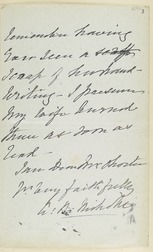 remember having
ever seen a scrap
Scrap of his hand-
writing - I presume
my wife burned
them as soon as
read -
I am Dear Mr Shorter
yrs very faithfully
A. B. Nicholls